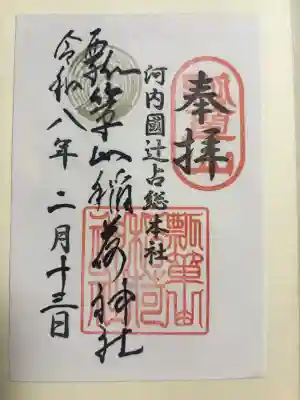 奉拝
河内國辻占総本社
瓢箪山稲荷神社
令和八年二月十三日
瓢箪山